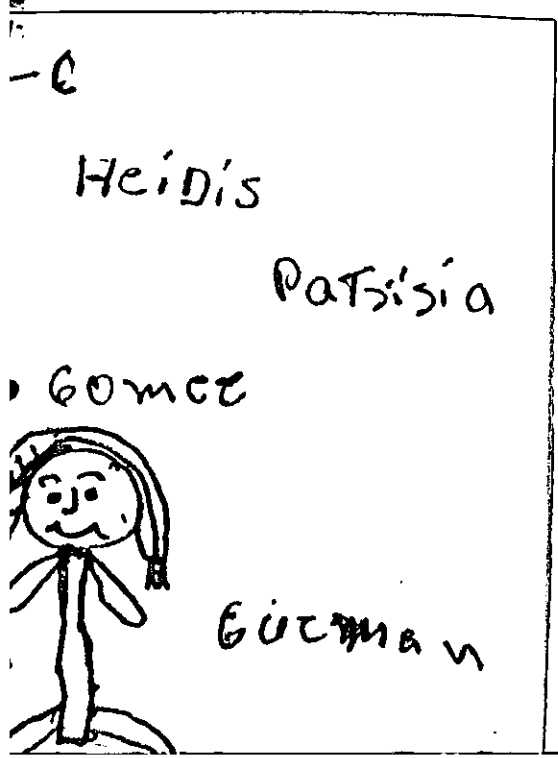 HeiDis
PaTsisia
Gomez
Guzman